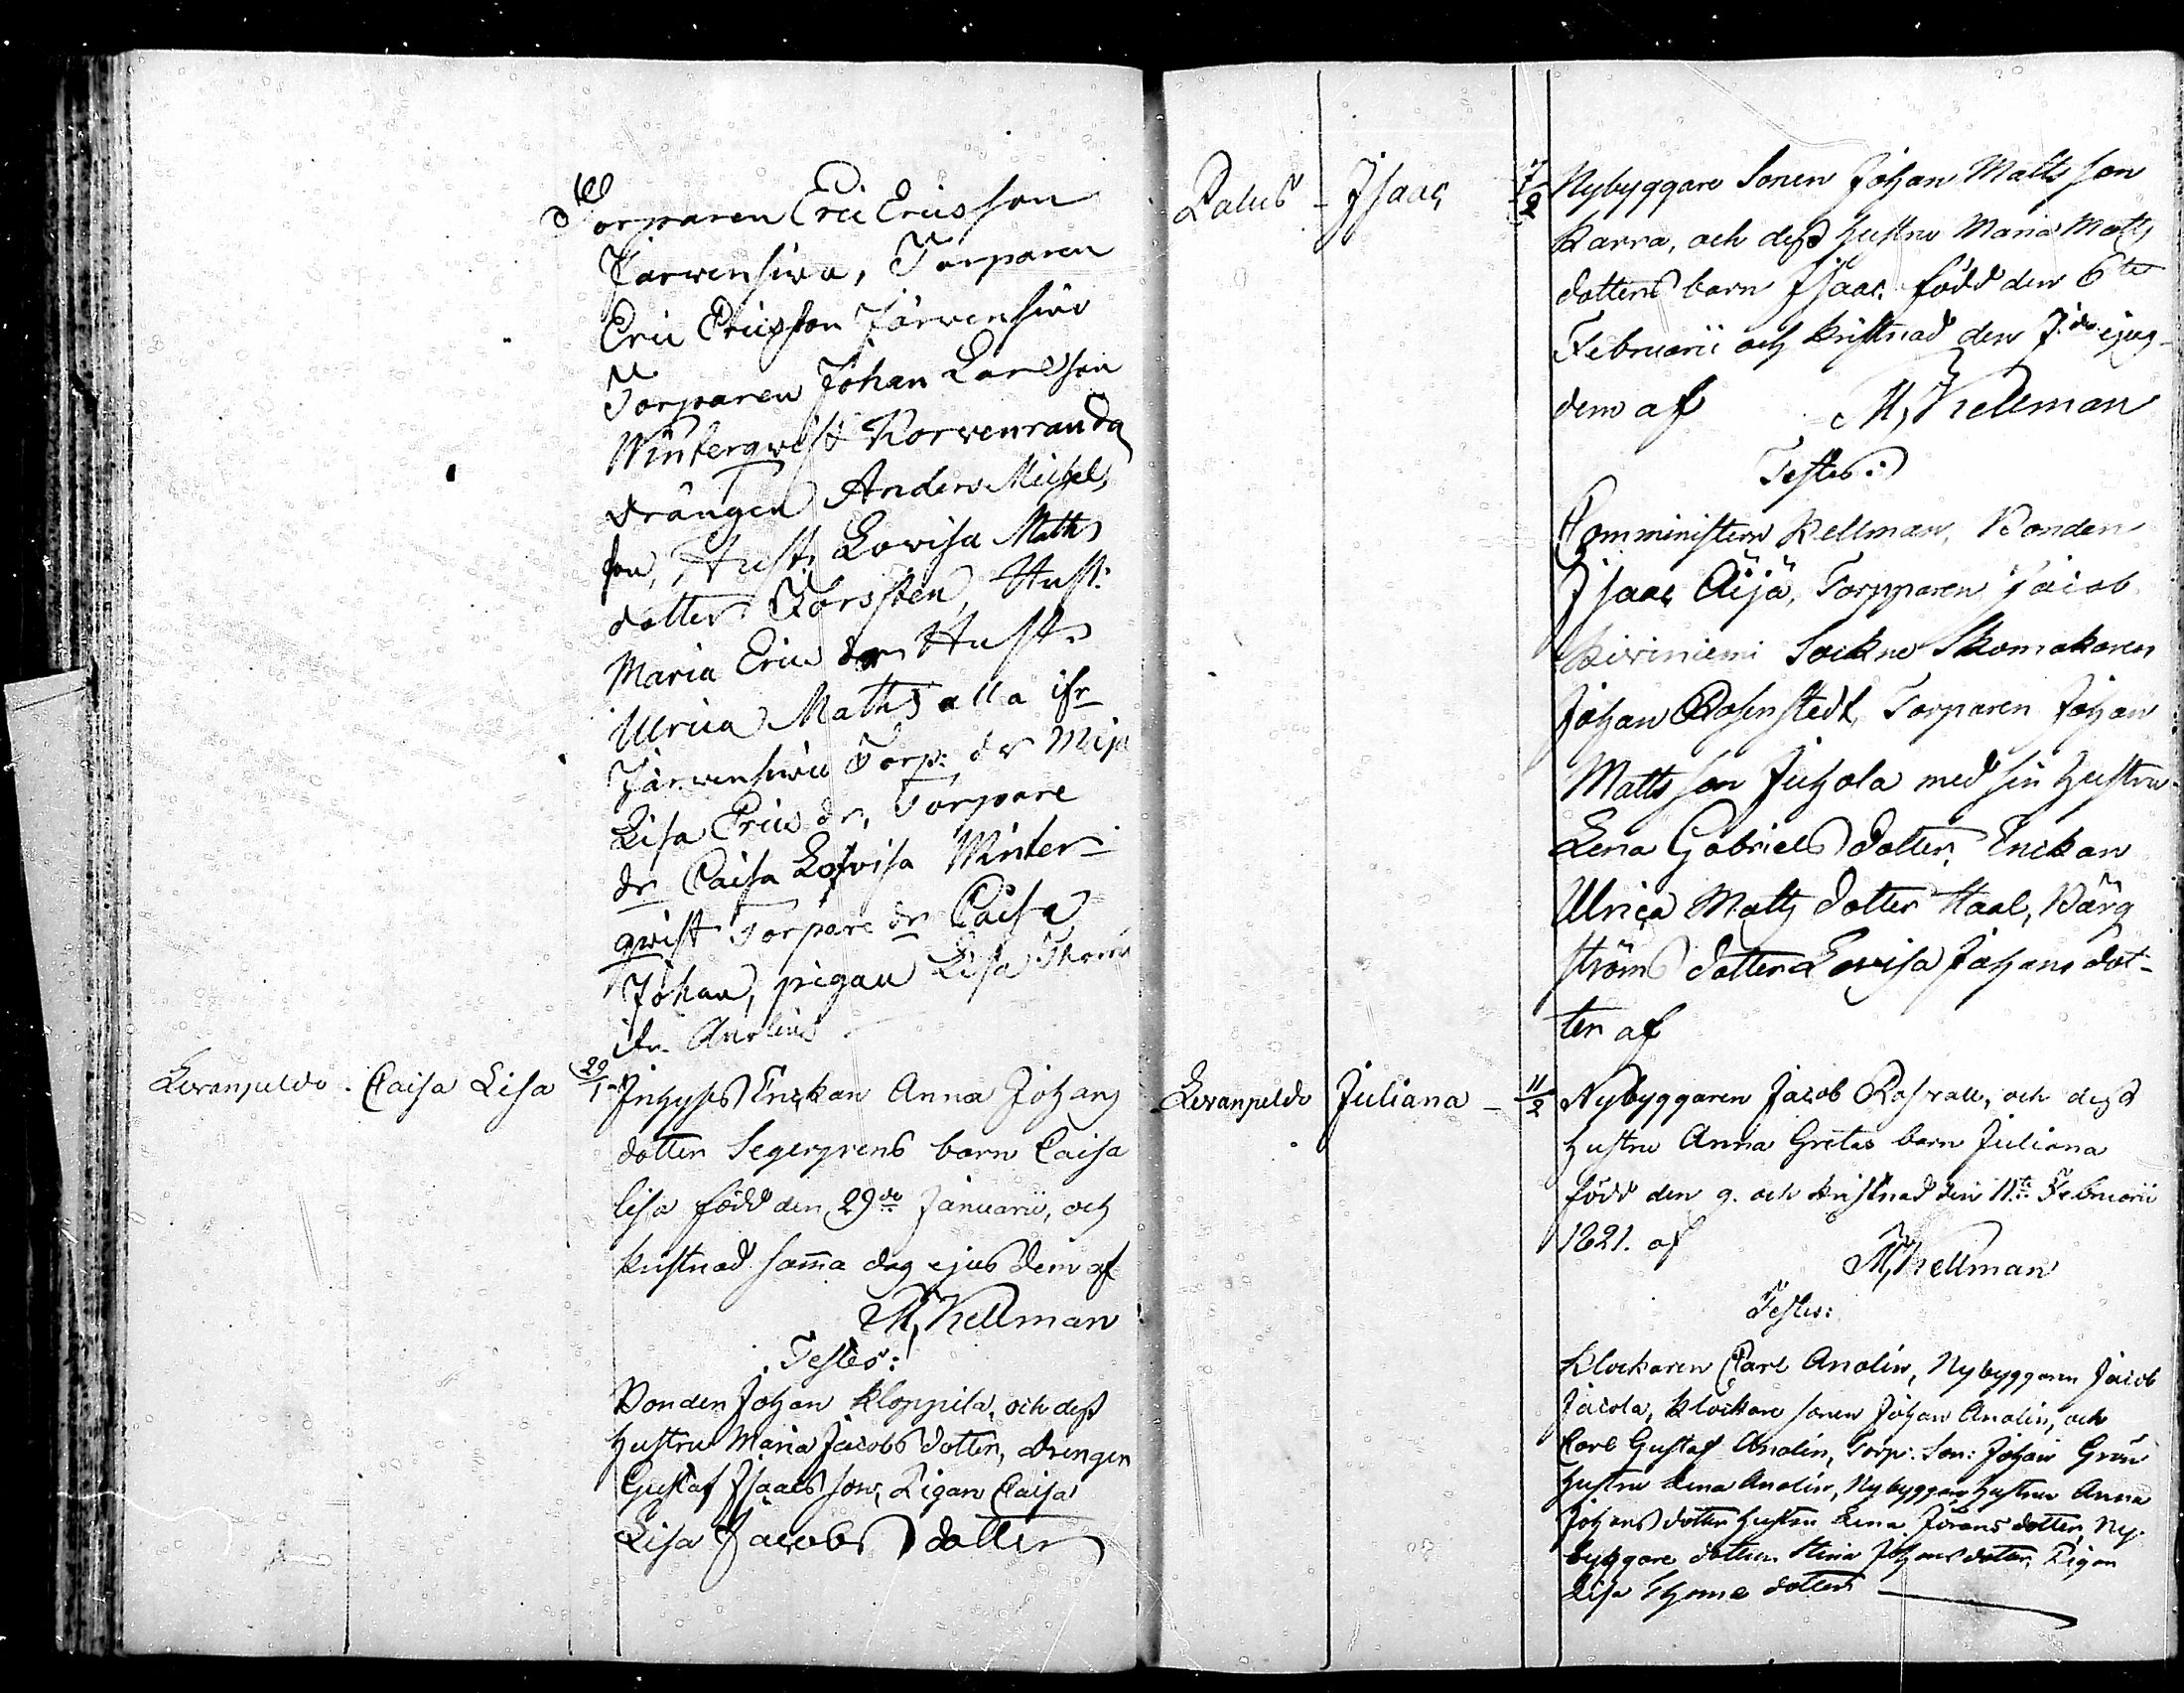 Torparen Eric Ericsson
Järvensiwu, Torparen
Eric Ericsson Järvensiwu
Torparen Johan Carlsson
Winterqwist Korvenranda
Drängen Anders Michel,
son, Hust, Lovisa Maths
dotter Forssten, Hust:
Maria Erics dr Hust:
Ulrica Maths alla ifr
Järvensiwu Torp: dr Maja
Lisa Erics dr, Torpare
dr Caisa Lovisa Winter-
qwist Torpare dr Caisa
Johan, pigan Lisa Thom
ifr. Anolins
Levanpeldo - Caisa Lisa 29/1 Inhyses Enckan Anna Johans
dotter Segerprens barn Caisa
Lisa född den 29de Januarii, och
kristnad samma dag ejusdem af
M, Kellman
Testes:
Bonden Johan Kloppila, och dess
hustru Maria Jacobs dotter, drengen
Gustaf Isaacs son, Pigan Caisa
Lisa Jacobs dotter
Palus - Isaac 7/2 Nybyggare Sonen Johan Matts son
Karra, och dess hustru Maria Matts
dotters barn Isaac född den 6te
Februarii och kristnad den 7de ejus-
dem af M, Kellman
Testes:
Comministern Kellman, Bonden
Isaac Äijä, Torpparen Jacob
Kiviniemi Sockne Skomakaren
Johan Rosenstedt, Torparen Johan
Matts son Juhola med sin hustru
Lena Gabriels dotter, Enckan
Ulrica Matts dotter Staal, Bärg
ströms dotter Lovisa Johans dot-
ter af
Levanpeldo Juliana - 11/2 Nybyggaren Jacob Rosvall, och dess
hustru Anna Gretas barn Juliana
född den 9. och kristnad den 11te Februarii
1821. af M, Kellman
Testes:
Klockaren Carl Anolin, Nybyggaren Jacob
Jacola, Klockare sonen Johan Anolin, och
Carl Gustaf Anolin, Torp: Son: Johan Grön
hustru Lena Anolin, Nybyggare hustrun Anna
Johans dotter hustru Lena Jörans dotter, Ny-
byggare dottern Stina Johans dotter, Pigan
Lisa Thomæ dotter